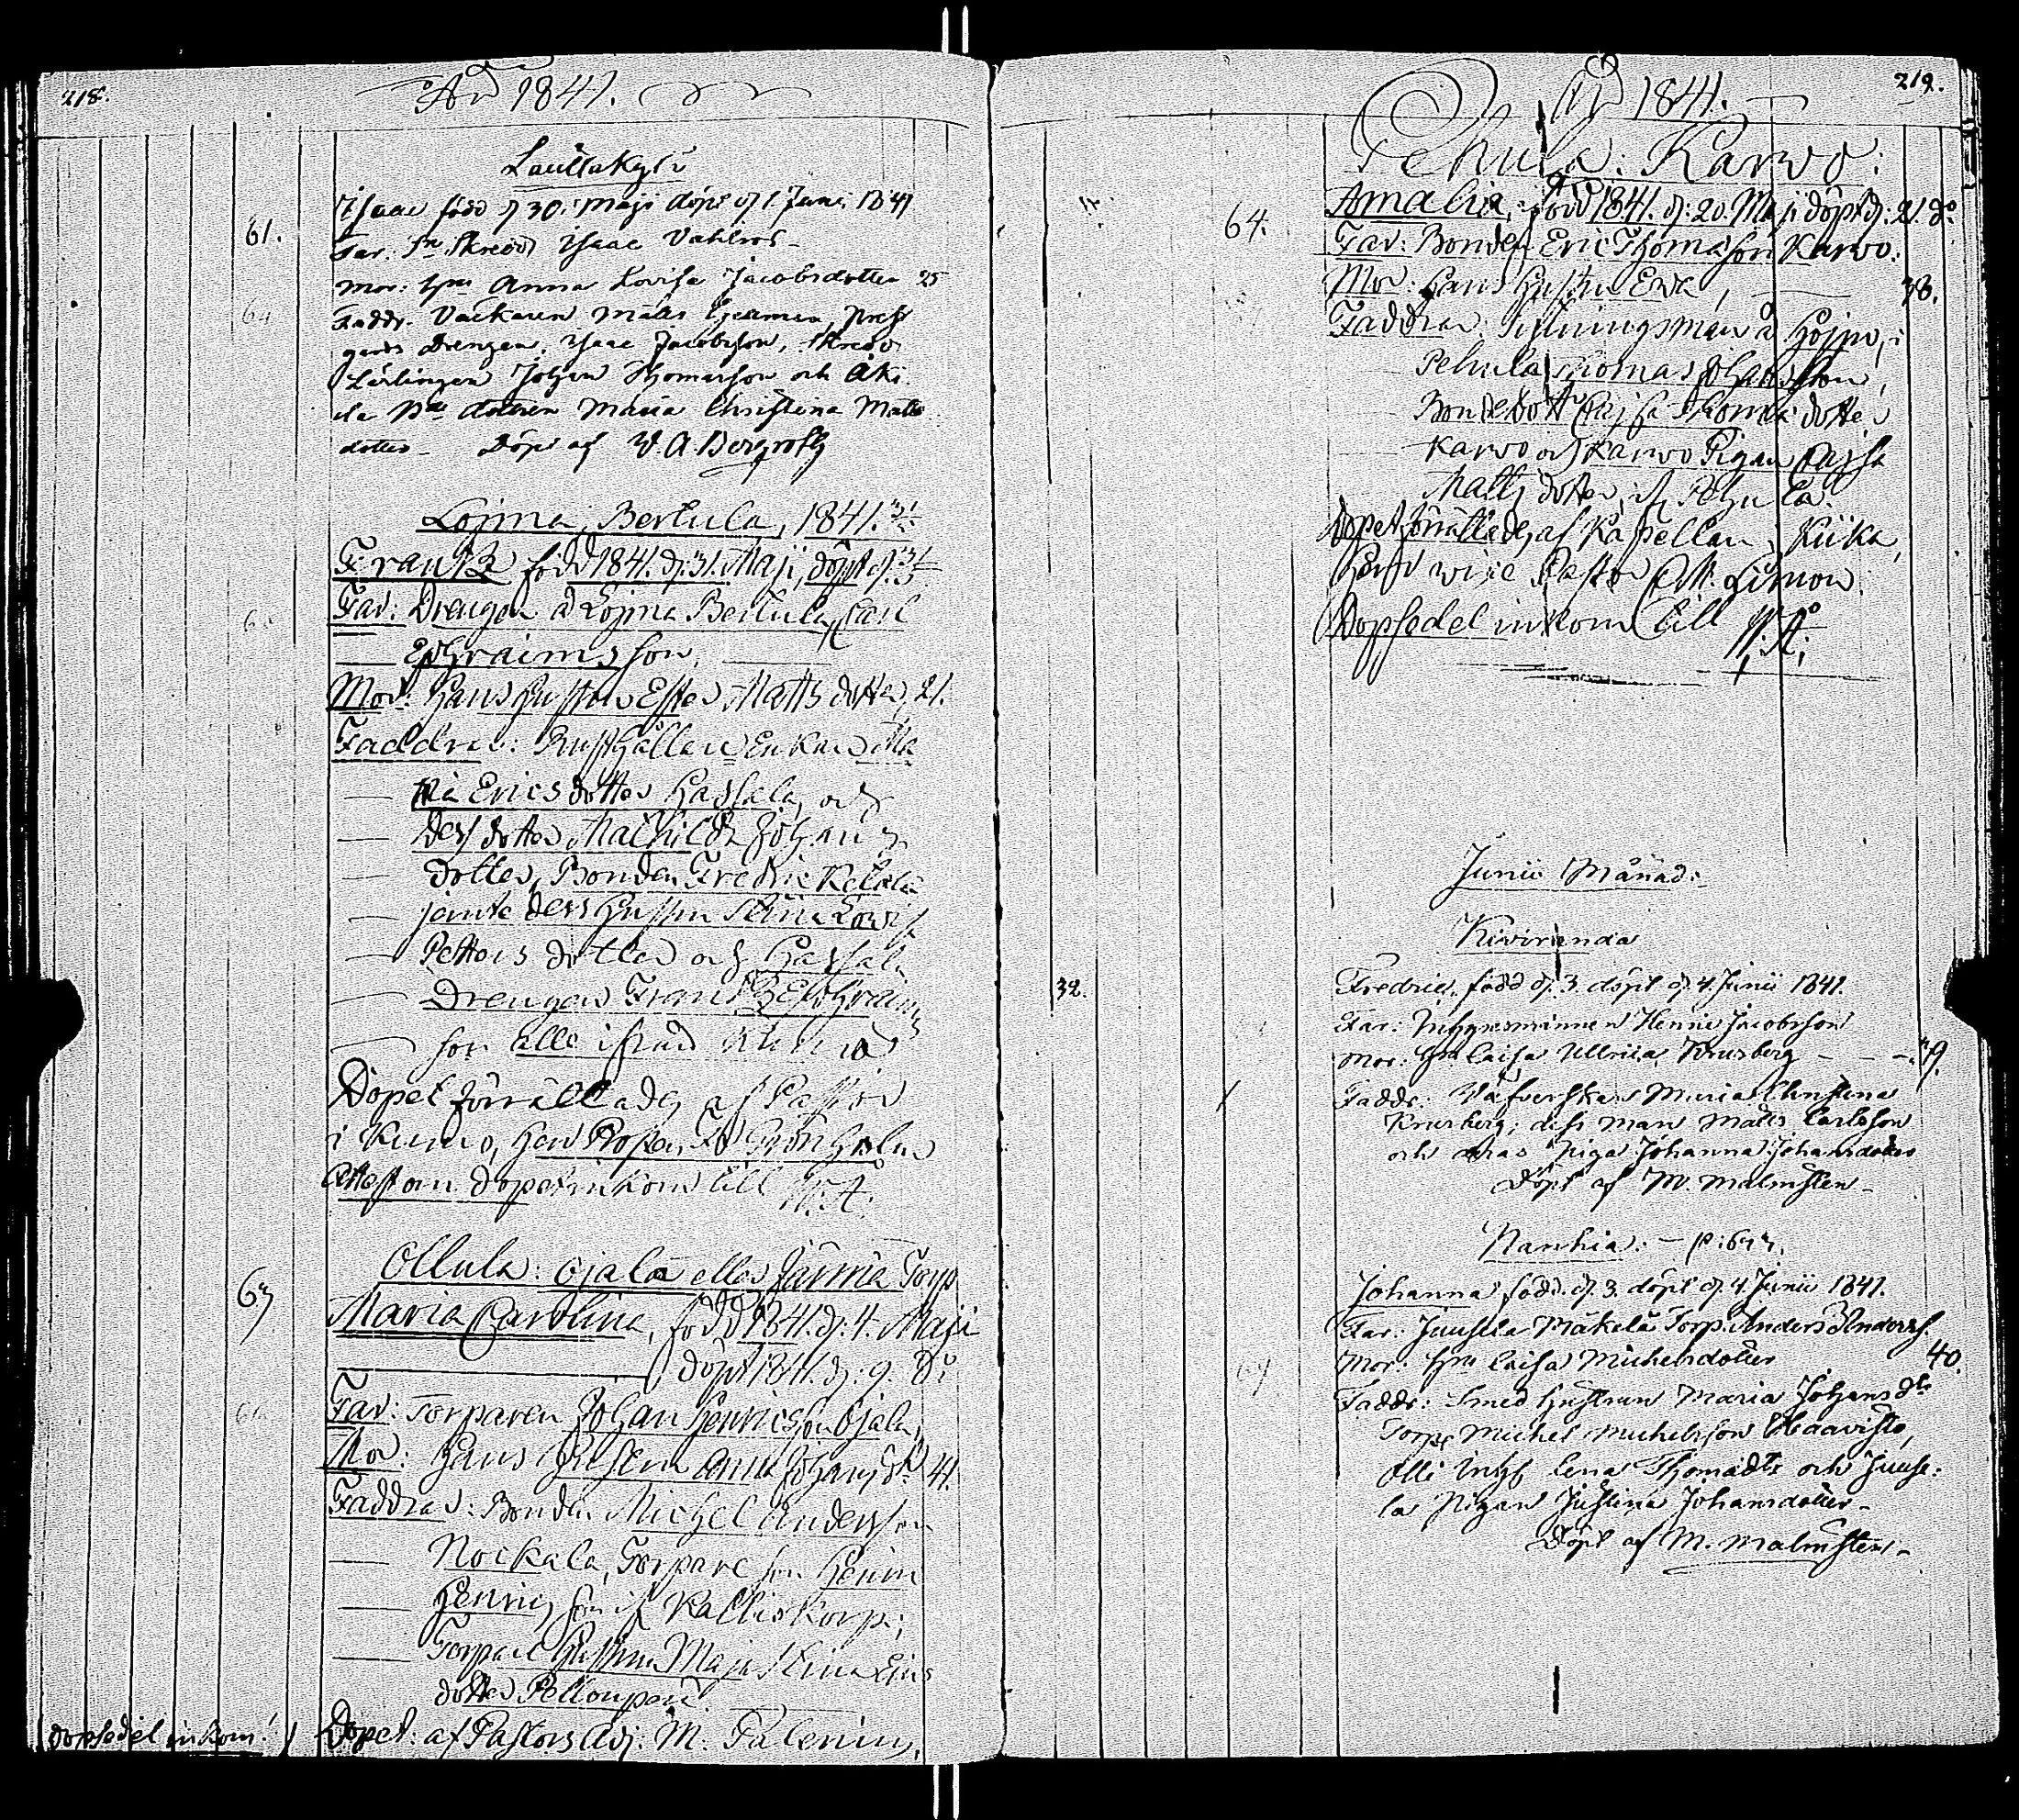 218.
År 1841.
Lauttakylä
61.
Isaac född d 30. Maji döpt d 1. Juni 1841
Far: Sn Skredd Isaac Vahlros
Mor: Hu Anna Lovisa Jacobsdotter 25
Faddr. Väckaren Matts
gards Drengen, Isaac Jacobsson, Skredd
Lärlingen Johan Thomasson och Äki
la dottren Maria Christina Matts
dotter - Döpt af V. A. Bergroth
Loima, Bertula, 1841.
Frantz född 1841. d. 31. Maji, döpt d.
Far: Drengen å Loima Bertula, Carl
Ephraimsson,
Mor: Hans Hustru Ester Matts dotter, 21.
Faddrar: Rusthållare Enkan Ma
ria Ericsdotter Hassala, och
Dess dotter Mathilda Johans
dotter, Bonden Fredric Ketola
jemte dess Hustru Stina Lovisa
Petters dotter och Hassala
Drengen Frans Ephraims
son alla ifrån
Döpet förrättades af Pastor
i Kumo, Herr Prosten Grönholm
Attest om döpet inkom till W. A.
63
Ollula: Ojala eller Järmiä Torp
Maria Carolina, född 1841. d. 4. Maji
döpt 1841. d. 9. do
Far: Torparen Johan Henricsson Ojala,
Mor: Hans Hustru Anna Johans dr 41.
Faddrar: Bonden Michel Andersson
Nockala, Torpare son Henric
Henrics son if Kallio Korpi,
Torpare Hustru Maja Stina Erics
dotter Pellonpää
Dopsedel inkom! Döpet: af Pastors Adj: M. Palenius,
219.
År 1841.
Pehula: Karvo:
64.
Amalia, född 1841. d. 20. Maji döpt d. 21. do
Far: Bonden Eric Thomasson Karvo.
Mor: Hans Hustru Eva, 38.
Faddrar: Fjerdingsman å Hojno, i
Pehula Thomas Johansson,
Bondedottr Cajsa Thomædotter
Karvo och Karvo Pigan Cajsa
Matts dotter, if Pehula.
Döpet förrättades af Kapellan i Kiika,
Herr vice Pastor Limon.
Dopsedel inkom till W. A.
Junii Månad:
Kiviranda
32.
Fredric, född d. 3. döpt d. 4. Junii 1841.
Far: Inhysesmannen Henric Jacobsson
Mor: Hu Caisa Ullrica Krusberg - - - 29.
Faddr: Väfverskan Maria Christina
Krusberg, dess man Matts Carlsson
och deras Piga Johanna Johansdotter
Döpt af M. Malmsten -
Nanhia: -
Johanna född. d. 3. döpt d. 4. Junii 1841.
Far: Juusela Mäkelä Torp. Anders Anderss.
Mor: Hu Caisa Michelsdotter 40.
Faddr: Smed Hustrun Maria Johans dr
Torp: Michel Michelsson Haavisto,
Olli Inhys Lena Thomædtr och Juuse:
la Pigan Justina Johansdotter -
Döpt af M. Malmsten -